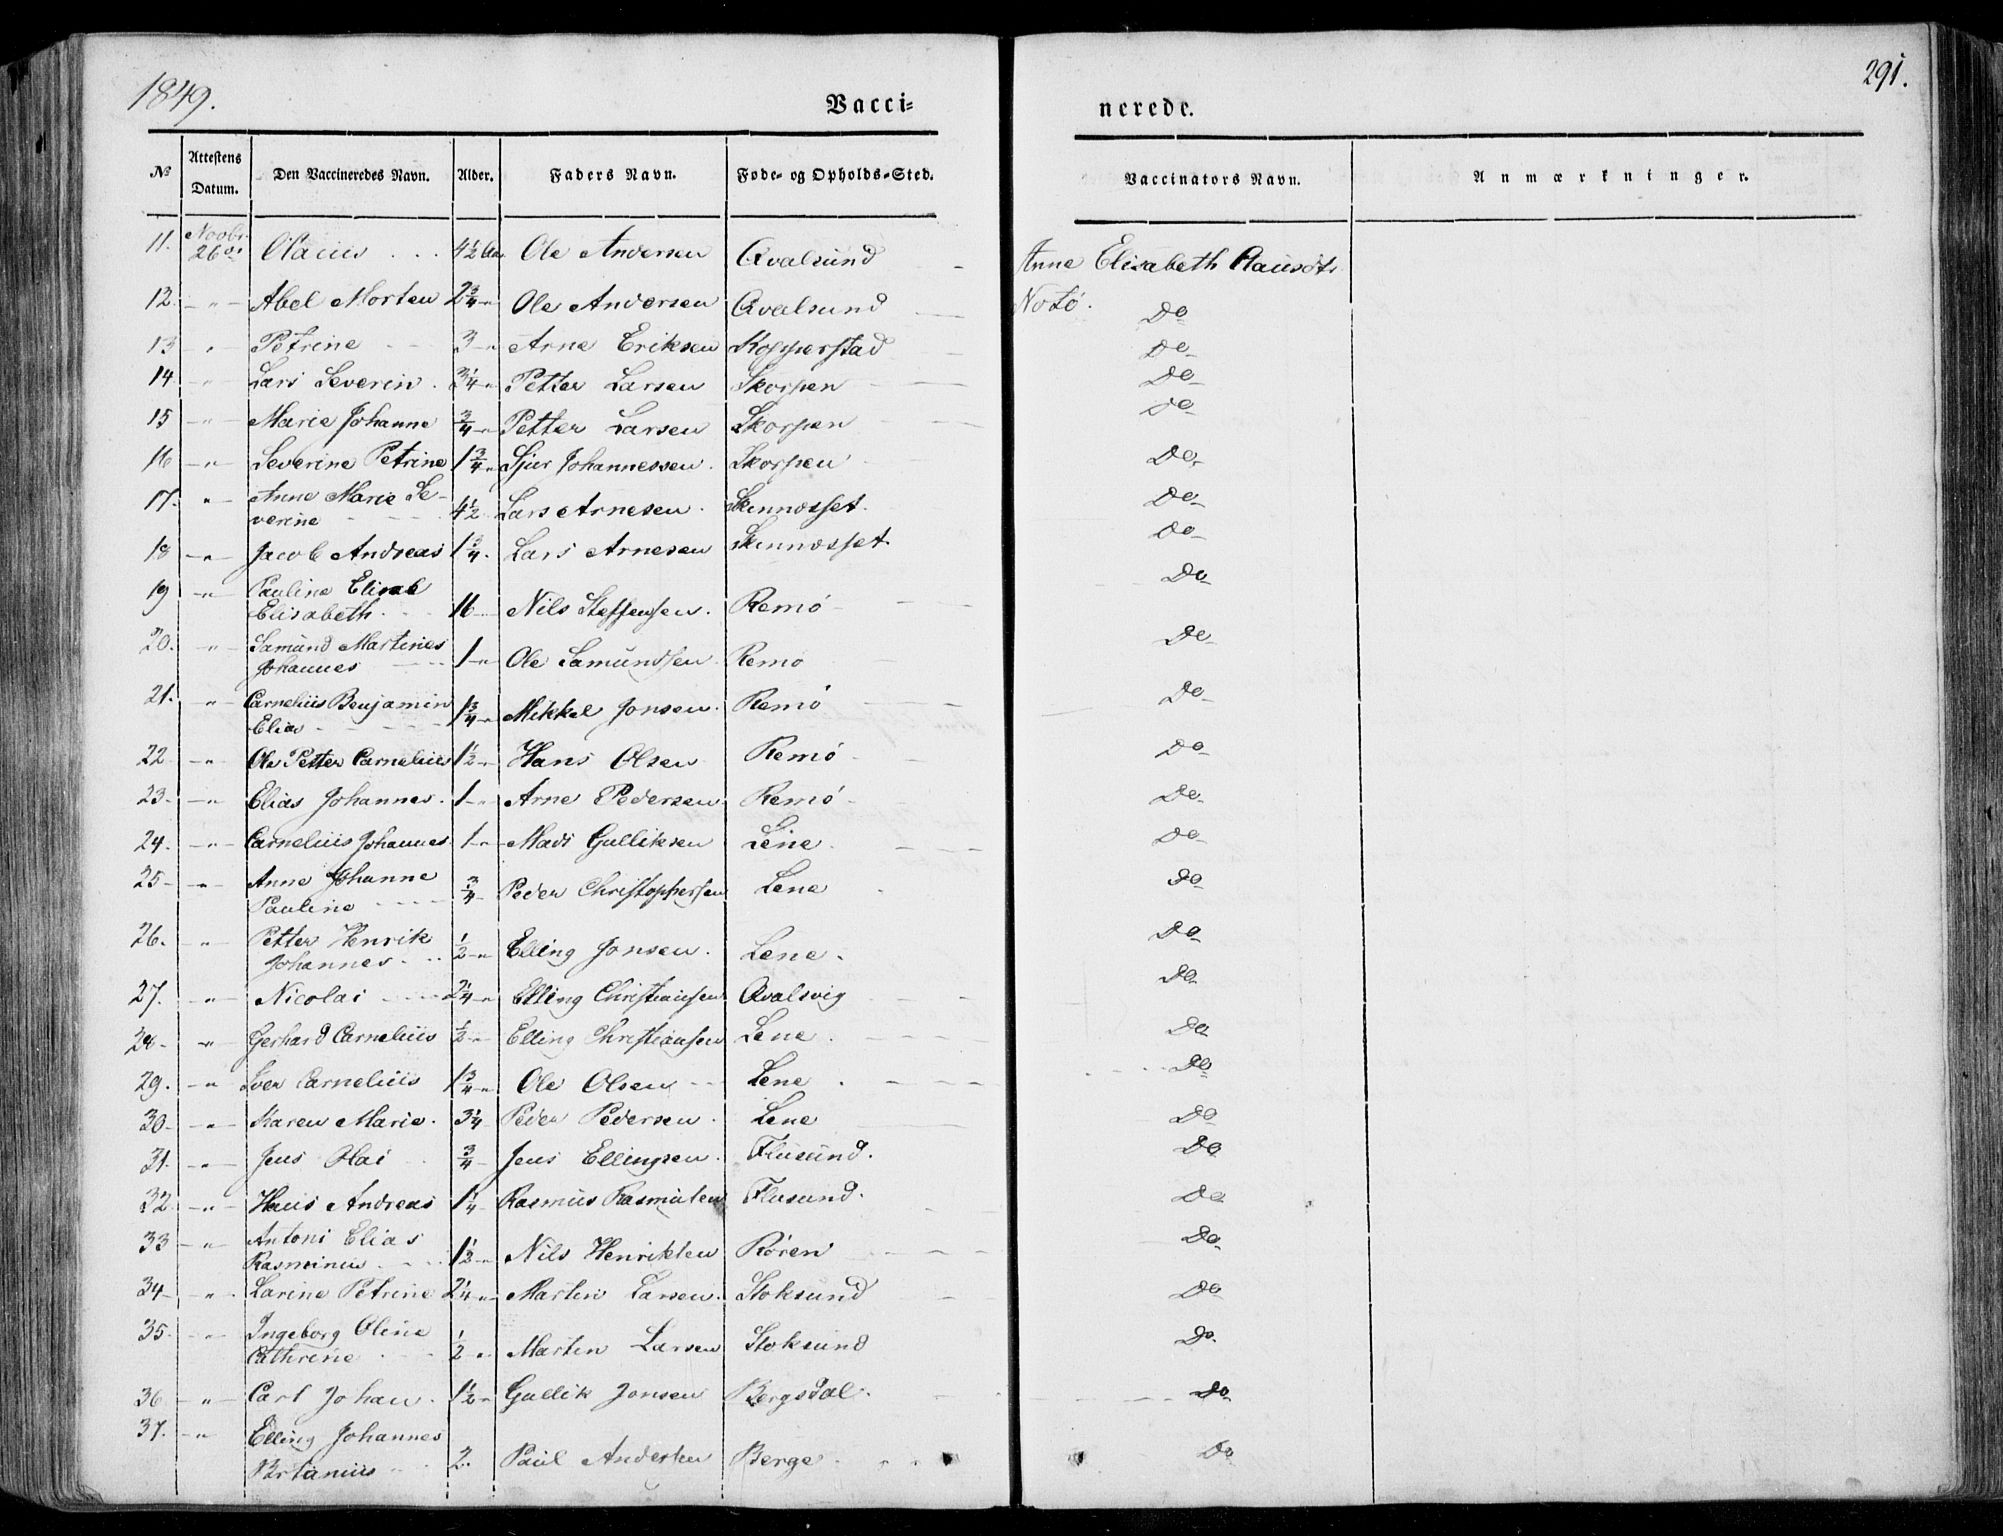 1849.
291.
Vacci-
nerede.
No
Attestens Datum.
Den Vaccineredes Navn.
Alder.
Faders Navn.
Føde- og Opholds-Sted.
Vaccinators Navn.
Anmærkninger.
11. Novbr. 26de Olaüs 4½ Aar Ole Andersen Qvalsund Anne Elisabeth Clausdt.
12. -"- Abel Morten 2¾ " Ole Andersen Qvalsund Notø. Do
13 " Petrine 3 " Arne Eriksen Kopperstad Do
14 " Lars Severin 3¼ " Petter Larsen Skorpen Do
15 " Marie Johanne ¾ " Petter Larsen Skorpen Do
16 -"- Severine Petrine 1¾ " Sjur Johannessen. Skorpen Do
17. " Anne Marie Se-
verine 4½ Lars Arnesen. Skinnesset. Do
18 -"- Jacob Andreas 1¾. Lars Arnesen Skinnesset Do
19 -"- Pauline Elisab
Elisabeth. 16 Nils Steffensen. Remø Do
20. -"- Samund Martines
Johannes 1 " Ole Samundsen Remø Do
21. -"- Carnelius Benjamin
Elias 1¾ " Mikkel Jonsen. Remø Do
22 -"- Ole Petter Carnelius 1½ " Hans Olsen Remø Do
23. -"- Elias Johannes. 1 " Arne Pedersen Remø Do
24. -"- Carnelius Johannes 1 " Mads Gulliksen Leine Do
25 -"- Anne Johanne
Pauline ¾ Peder Christophersen Lene Do
26. -"- Petter Henrik
Johannes. ½ " Elling Jonsen. Lene. Do
27. -"- Nicolai 2¼ " Elling Christiansen Qvalsvig Do
28 -"- Gerhard Carnelius ½ " Elling Christiansen Lene Do
29. -"- Iver Carnelius 1¾ " Ole Olsen Lene Do
30 -"- Karen Marie. 3¼ Peder Pedersen Lene Do
31. -"- Jens Olai ¾ Jens Ellingsen. Flusund. Do
32 -"- Hans Andreas 1¼ Rasmus Rasmusen Flusund. Do
33 -"- Antoni Elias
Rasminus 1½ " Nils Henriksen Røren Do
34 -"- Larine Petrine 2¼ " Martin Larsen. Stoksund Do
35. -"- Ingeborg Oline
Cathrine ½ " Martin Larsen Stoksund Do
36 -"- Carl Johan. 1½ " Gullik Jonsen Bergsdal. Do
37. -"- Elling Johannes
Britanius 2. Paul Andersen Berge Do